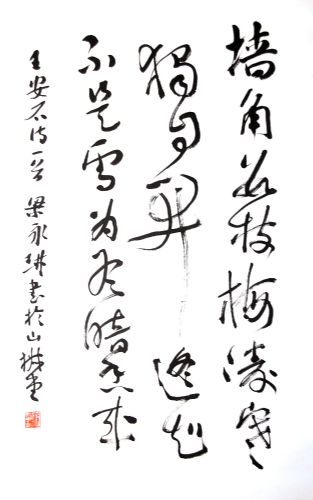 墙角数枝梅凌寒
獨自開遥知
不是雪为有暗香来
王安石诗一首 梁永书於山堂